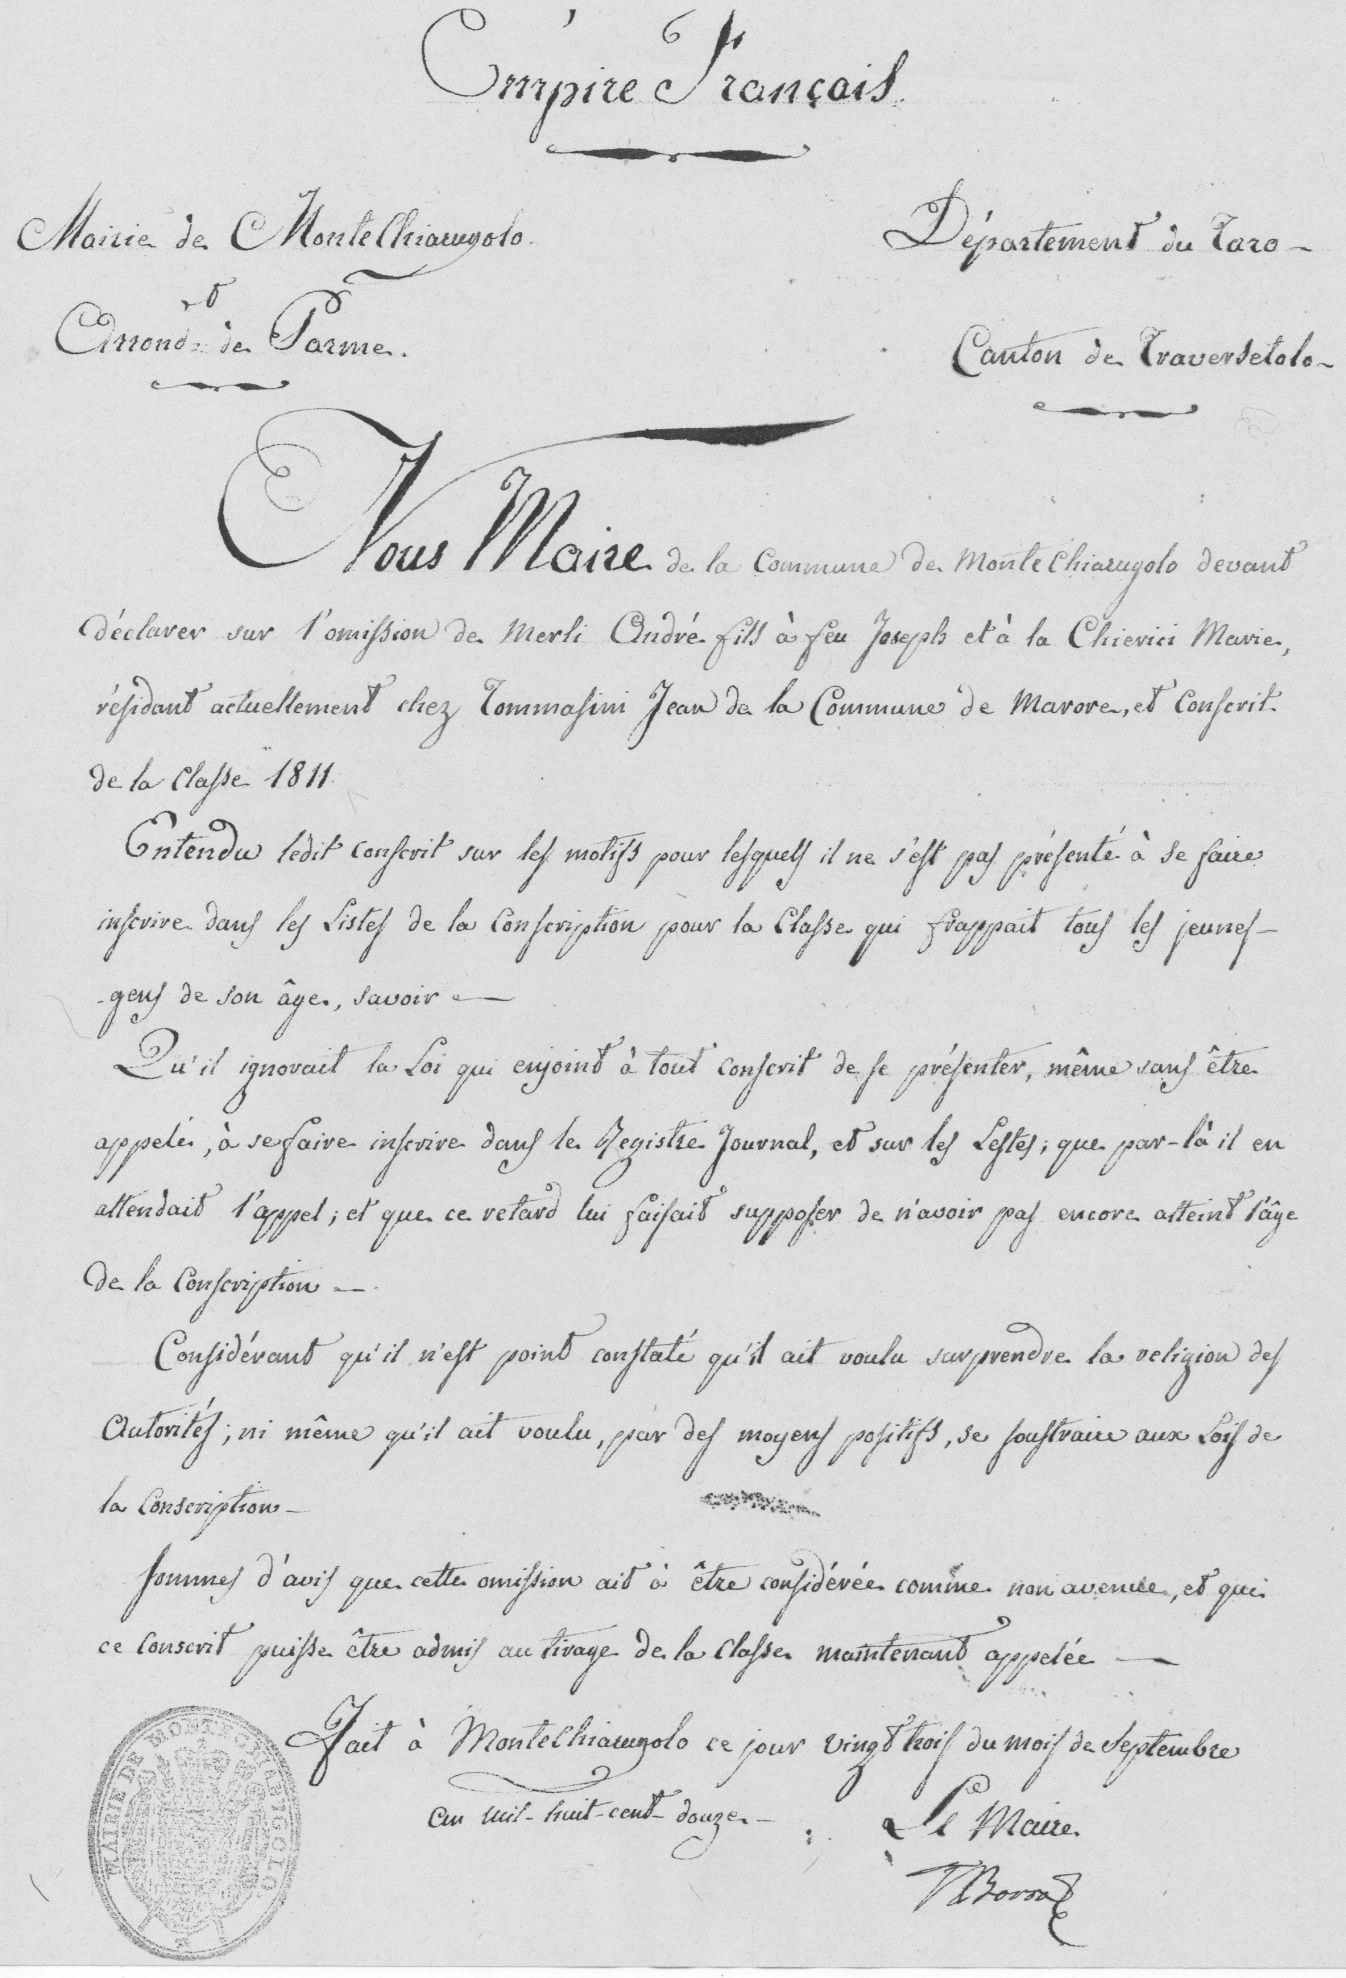 Empire Français
Mairie de MonteChiarugolo.
Département du Taro
Arrond.t de Parme.
Canton de Traversetolo
Nous Maire de la Commune de MonteChiarugolo devant
déclarer sur l'omission de Merli André fils à feu Joseph et à la Chierici Marie,
résidant actuellement chez Tommasini Jean de la Commune de Marore, et Conscrit
de la Classe 1811
Entendu ledit conscrit sur les motifs pour lesquels il ne s'est pas présenté à se faire
inscrire dans les Listes de la Conscription pour la Classe qui frappait tous les jeunes-
-gens de son âge, savoir —
Qu'il ignorait la Loi qui enjoint à tout conscrit de se présenter, même sans être
appelé, à se faire inscrire dans le Registre Journal, et sur les Lestes; que par-là il en
attendait l'appel; et que ce retard lui faisait supposer de n'avoir pas encore atteint l'âge
de la Conscription —
Considérant qu'il n'est point constaté qu'il ait voulu surprendre la religion des
Autorités; ni même qu'il ait voulu, par des moyens positifs, se soustraire aux Lois de
la Conscription —
Sommes d'avis que cette omission ait à être considérée comme non avenue, et que
ce Conscrit puisse être admis au tirage de la Classe maintenant appelée —
Fait à MonteChiarugolo ce jour vingt trois du mois de Septembre
an mil-huit-cent-douze.
Le Maire
MAIRIE DE MONTECHIARUGOLO